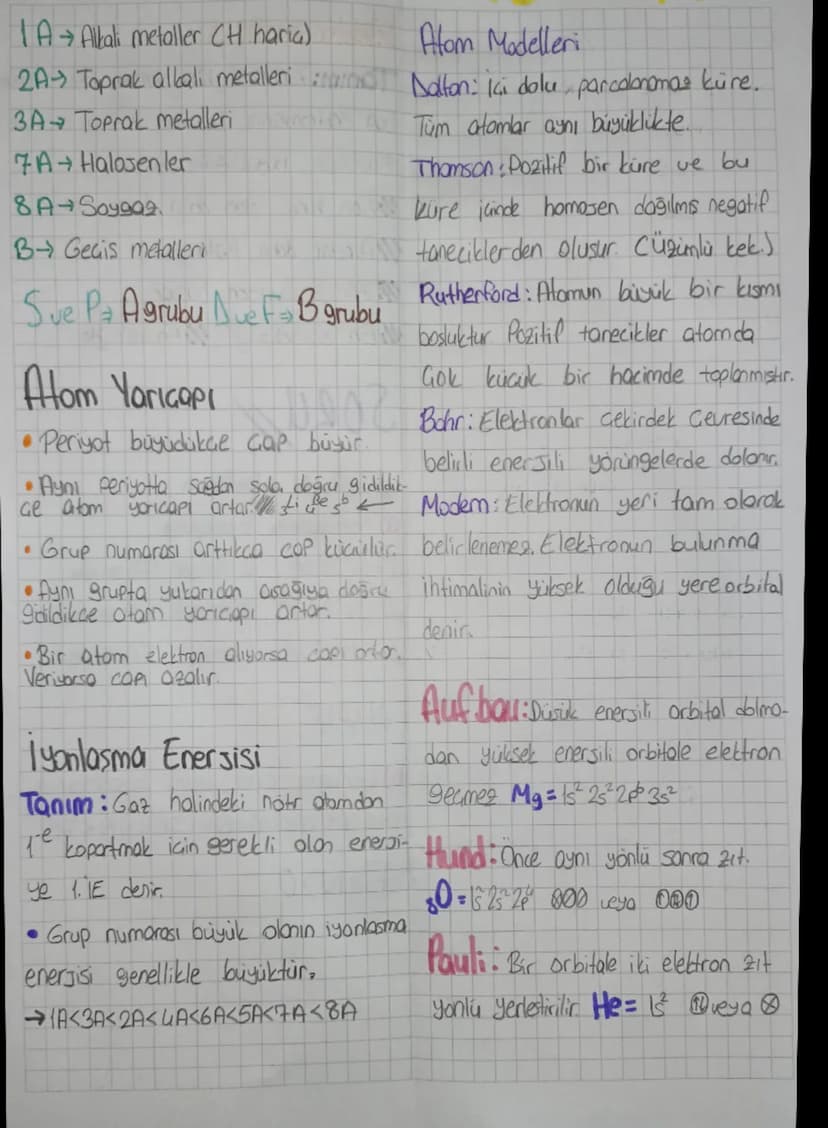 1A→ Alkali metaller (H haric)
2A→ Toprak alkali metalleri
3A→ Toprak metalleri
7A→ Halojenler
8A→ Soygaz.
B→ Geçis metalleri
S ve P→ A grubu D ve F→ B grubu
Atom Yarıcapı
• Periyot büyüdükçe Çap büyür.
• Aynı periyotta sağdan sola doğru gidildik-
çe atom yarıcapı artar. ←
• Grup numarası arttıkca cap küçülür.
• Aynı grupta yukarıdan asağıya doğru
gidildikce atom yarıcapı artar.
• Bir atom elektron alıyorsa capı artar.
Veriyorsa capı azalır.
İyonlasma Enerjisi
Tanım: Gaz halindeki nötr atomdan
1 e⁻ kopartmak icin gerekli olan enerji-
ye 1.İE denir.
• Grup numarası büyük olanın iyonlasma
enerjisi genellikle büyüktür.
→1A<3A<2A<4A<6A<5A<7A<8A
Atom Modelleri
Dalton: İçi dolu, parcalanamaz küre.
Tüm atomlar aynı büyüklükte.
Thomson: Pozitif bir küre ve bu
küre içinde homojen dağılmıs negatif
taneciklerden olusur. (Üzümlü kek.)
Rutherford: Atomun büyük bir kısmı
bosluktur Pozitif tanecikler atomda
Çok küçük bir hacimde toplanmıstır.
Bohr: Elektronlar çekirdek Çevresinde
belirli enerjili yörüngelerde dolanır.
Modern: Elektronun yeri tam olarak
belirlenemez. Elektronun bulunma
ihtimalinin yüksek olduğu yere orbital
denir.
Aufbau: Düsük enerjili orbital dolma-
dan yüksek enerjili orbitale elektron
geçmez Mg= 1s² 2s² 2p⁶ 3s²
Hund: Önce aynı yönlü sonra zıt.
₈O= 1s² 2s² 2p⁴ veya
Pauli: Bir orbitale iki elektron zıt
yönlü yerlestirilir. He= 1s² ⥮ veya ⊗